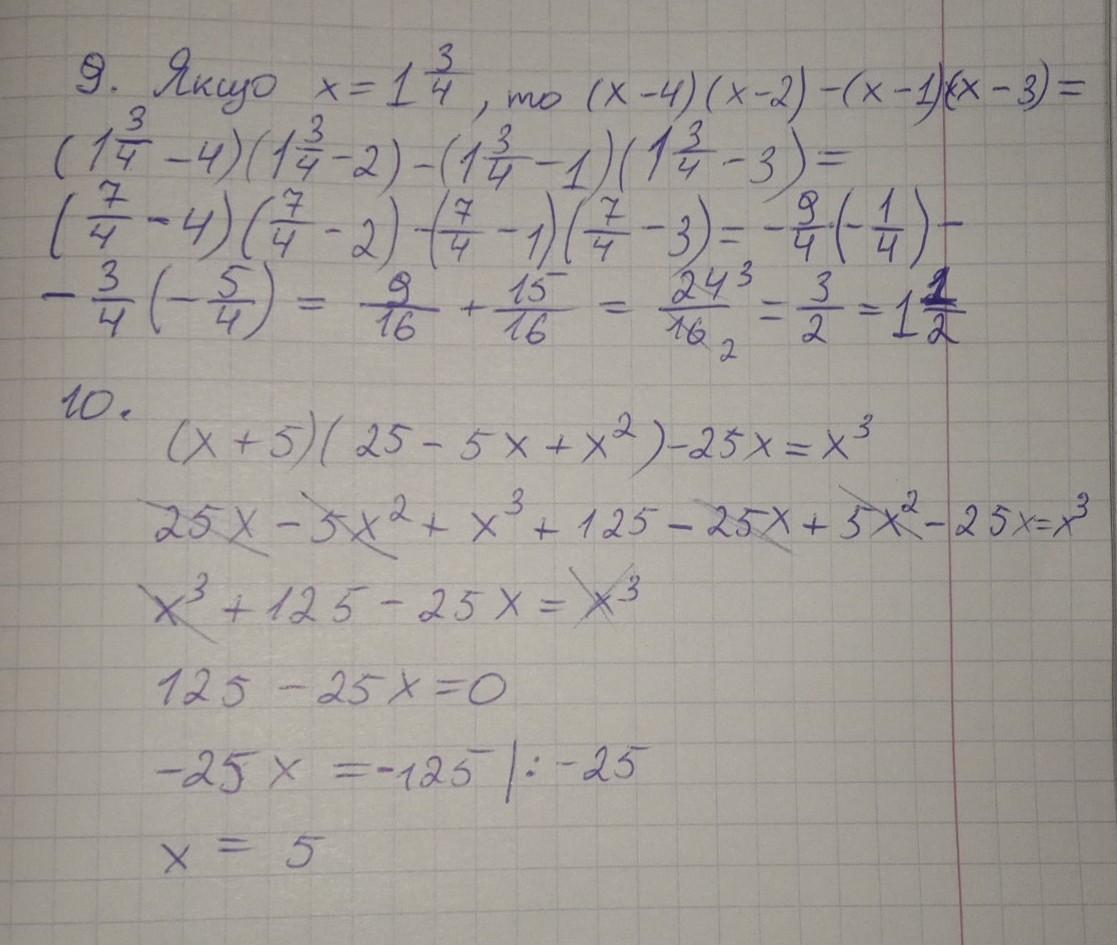 9. Якщо x = 1 3/4, то (x - 4)(x - 2) - (x - 1)(x - 3) =
(1 3/4 - 4)(1 3/4 - 2) - (1 3/4 - 1)(1 3/4 - 3) =
(7/4 - 4)(7/4 - 2) - (7/4 - 1)(7/4 - 3) = -9/4·(-1/4) -
- 3/4 (-5/4) = 9/16 + 15/16 = 24³/16₂ = 3/2 = 1 1/2
10.
(x + 5)(25 - 5x + x²) - 25x = x³
25x - 5x² + x³ + 125 - 25x + 5x² - 25x = x³
x³ + 125 - 25x = x³
125 - 25x = 0
-25x = -125 |: -25
x = 5